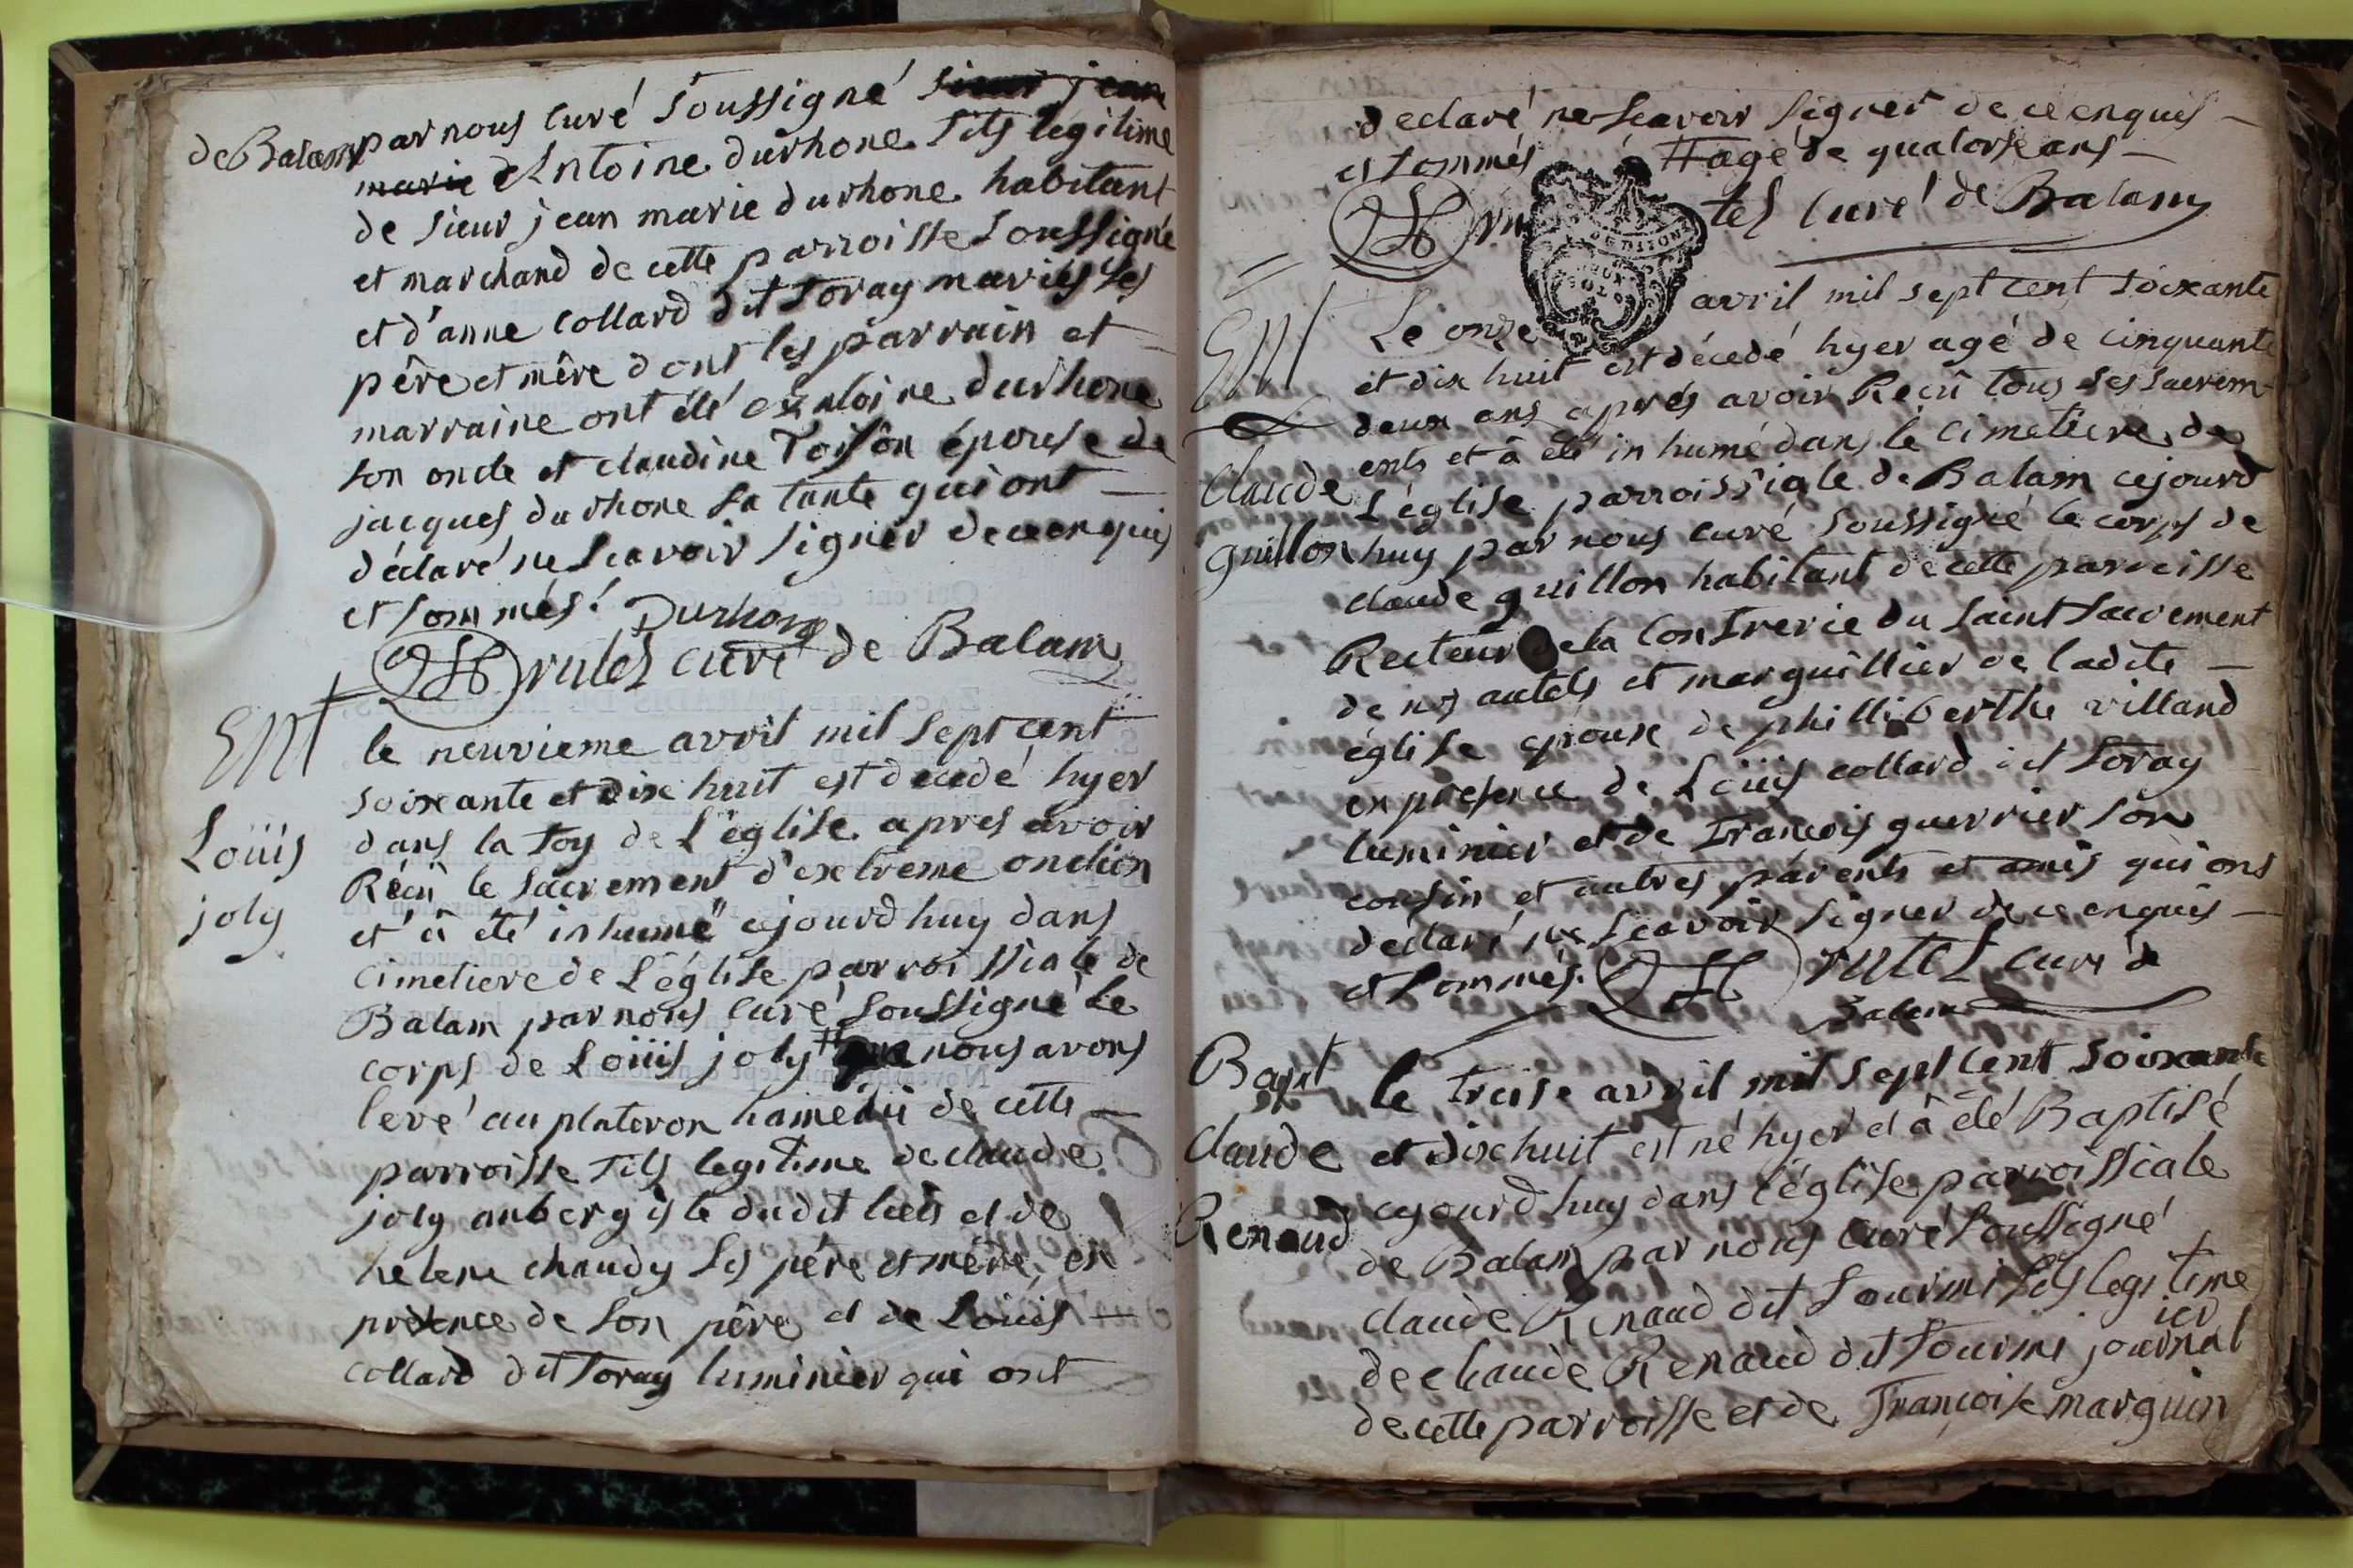 de Balam par nous curé soussigné sieur jean
marie Antoine durhone fils legitime
de sieur jean marie durhone habitant
et marchand de cette parroisse soussigné
et d'anne collard dit foray mariés ses
père et mère dont les parrain et
marraine ont été antoine durhone
son oncle et claudine Toison épouse de
jacques durhone sa tante qui ont
déclaré ne scavoir signer de ce enquis
et sommés. Durhone
rutes curé de Balam
Ent
le neuvieme avril mil sept cent
soixante et dix huit est decedé hyer
Loüis
dans la foy de L'église apres avoir
Récû le sacrement d'extreme onction
joly
et à été inhumé cejourdhuy dans
cimetiere de L'église parroissiale de
Balam par nous curé soussigné le
corps de Loüis joly # nous avons
levé au plateron hamedu de cette
parroisse fils legitime de claude
joly aubergiste dudit lieu et de
helene chaudy ses père et mère, en
présence de son père et de Loüis
collard dit foray luminier qui ont
declaré ne scavoir signer de ce enquis
et sommés # agé de quatorse ans
tes curé de Balam
Ent
Le onze avril mil sept cent soixante
et dix huit est décedé hyer agé de cinquante
deux ans aprés avoir Reçû tous ses sacrem
ents et à été inhumé dans le cimetiere de
Claude
L'église parroissiale de Balam cejourd
guillon
huy par nous curé soussigné le corps de
claude guillon habitant de cette parroisse
Recteur de la Confrerie du saint sacrement
de nos autels et marguillier de ladite
église epoux de phillïberthe villand
en présence de Loüis collard dit foray
luminier et de François guerrier son
cousin et autres parents et amis qui ons
déclaré ne scavoir signer de ce enquis
et sommés. rutes curé de
Balam
Bapt
le treise avril mil sept cent soixante
Claude
et dixhuit est né hyer et à été Baptisé
cejourdhuy dans l'église parroissiale
Renaud
de Balam par nous curé soussigné
claude Renaud dit fourmi fils legitime
ier
de claude Renaud dit fourmi journal
de cette parroisse et de Françoise marguin